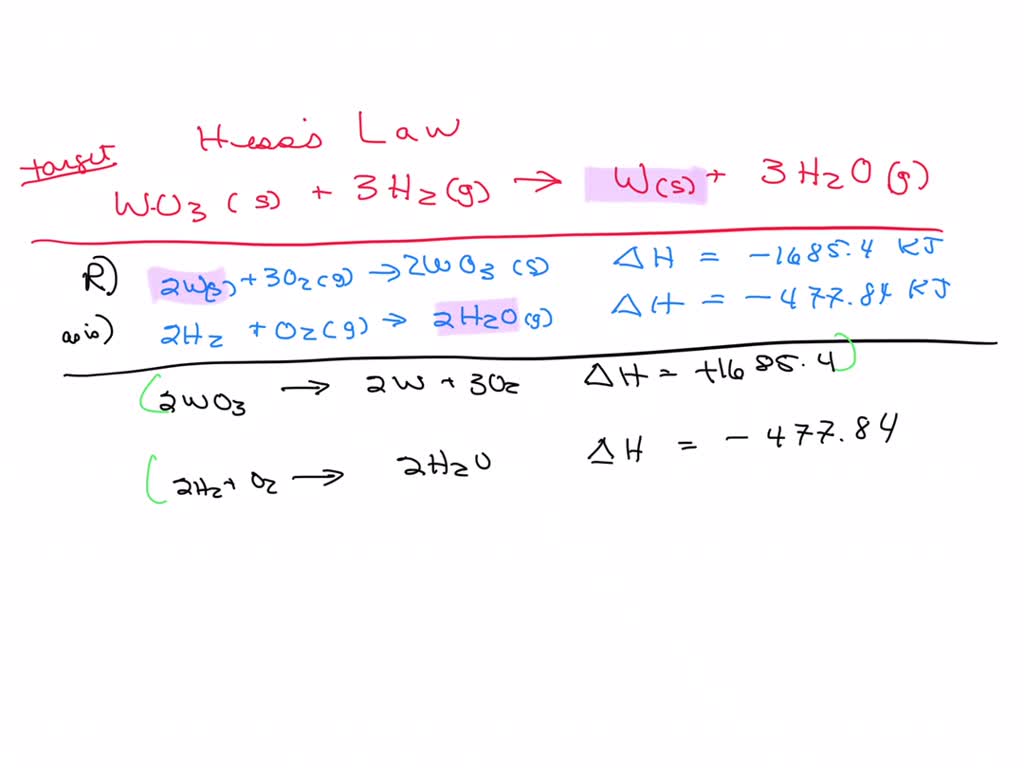 Hess's Law
target
WO3 (s) + 3H2(g) → W(s) + 3H2O(g)
R) 2W(s) + 3O2(g) → 2WO3(s) ΔH = -1685.4 KJ
as is) 2H2 + O2(g) → 2H2O(g) ΔH = -477.84 KJ
(2WO3 → 2W + 3O2 ΔH = +1685.4)
(2H2 + O2 → 2H2O ΔH = -477.84